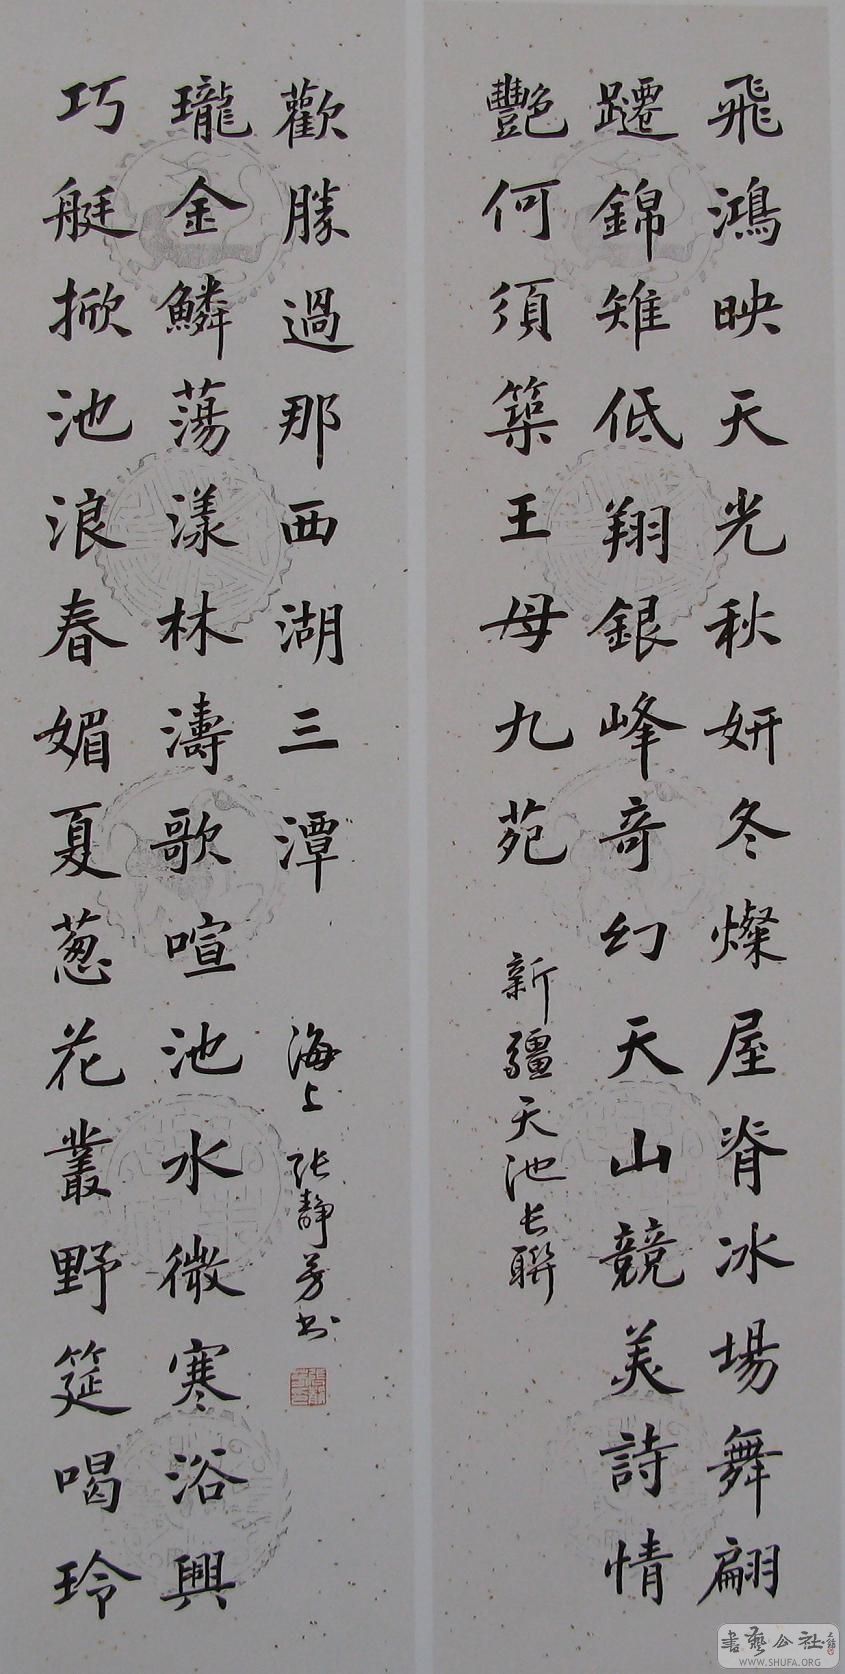 飛鴻映天光秋妍冬燦屋脊冰場舞翩
躚錦雉低翔銀峰奇幻天山競美詩情
艷何須築王母九苑
新疆天池长聯
巧艇掀池浪春媚夏葱花叢野筵喝玲
瓏金鱗蕩漾林濤歌喧池水微寒浴興
歡勝過那西湖三潭
海上张靜芳书
書藝公社
WWW.SHUFA.ORG